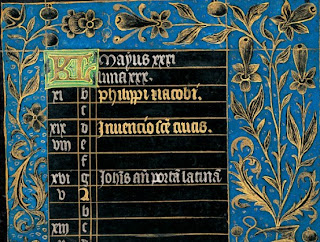 KL Mayus xxxi
luna xxx.
xi b Philippi iacobi.
c
xix d Inuencio sc̄e crucis.
viii e
f
xvi g Joh̄is an̄ portā latinā
v A
b
xiii c